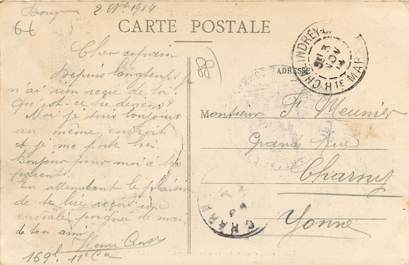 2 9bre 1914
CARTE POSTALE
Cher copain
Depuis longtemps je
n'ai rien reçu de toi
Qu'est-ce que tu deviens ?
Moi je suis toujours
au même endroit
et je me porte bien
Bonjour pour moi à tes
parents.
En attendant le plaisir
de te lire reçois une
cordiale poignée de main
de ton ami
169e 11e Cie
88
ADRESSE
CHALINDREY
Hte MAR
Monsieur F. Meunier
Grande Rue
Charny
Yonne
CHARNY